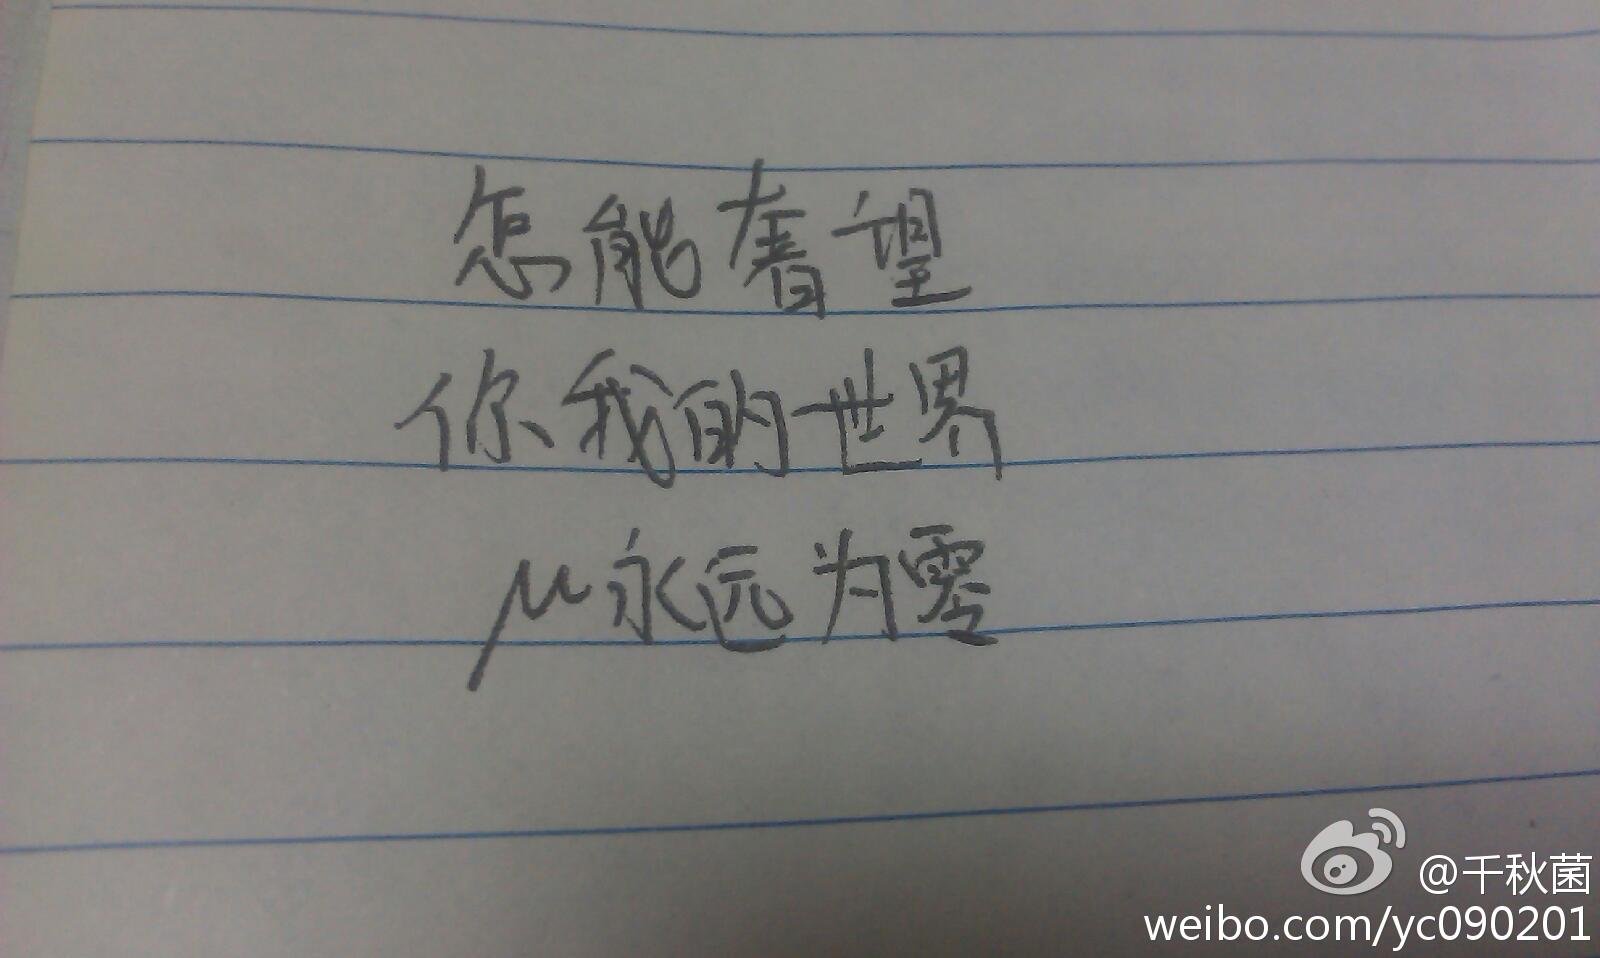 怎能奢望
你我的世界
μ永远为零
@千秋菌
weibo.com/yc090201